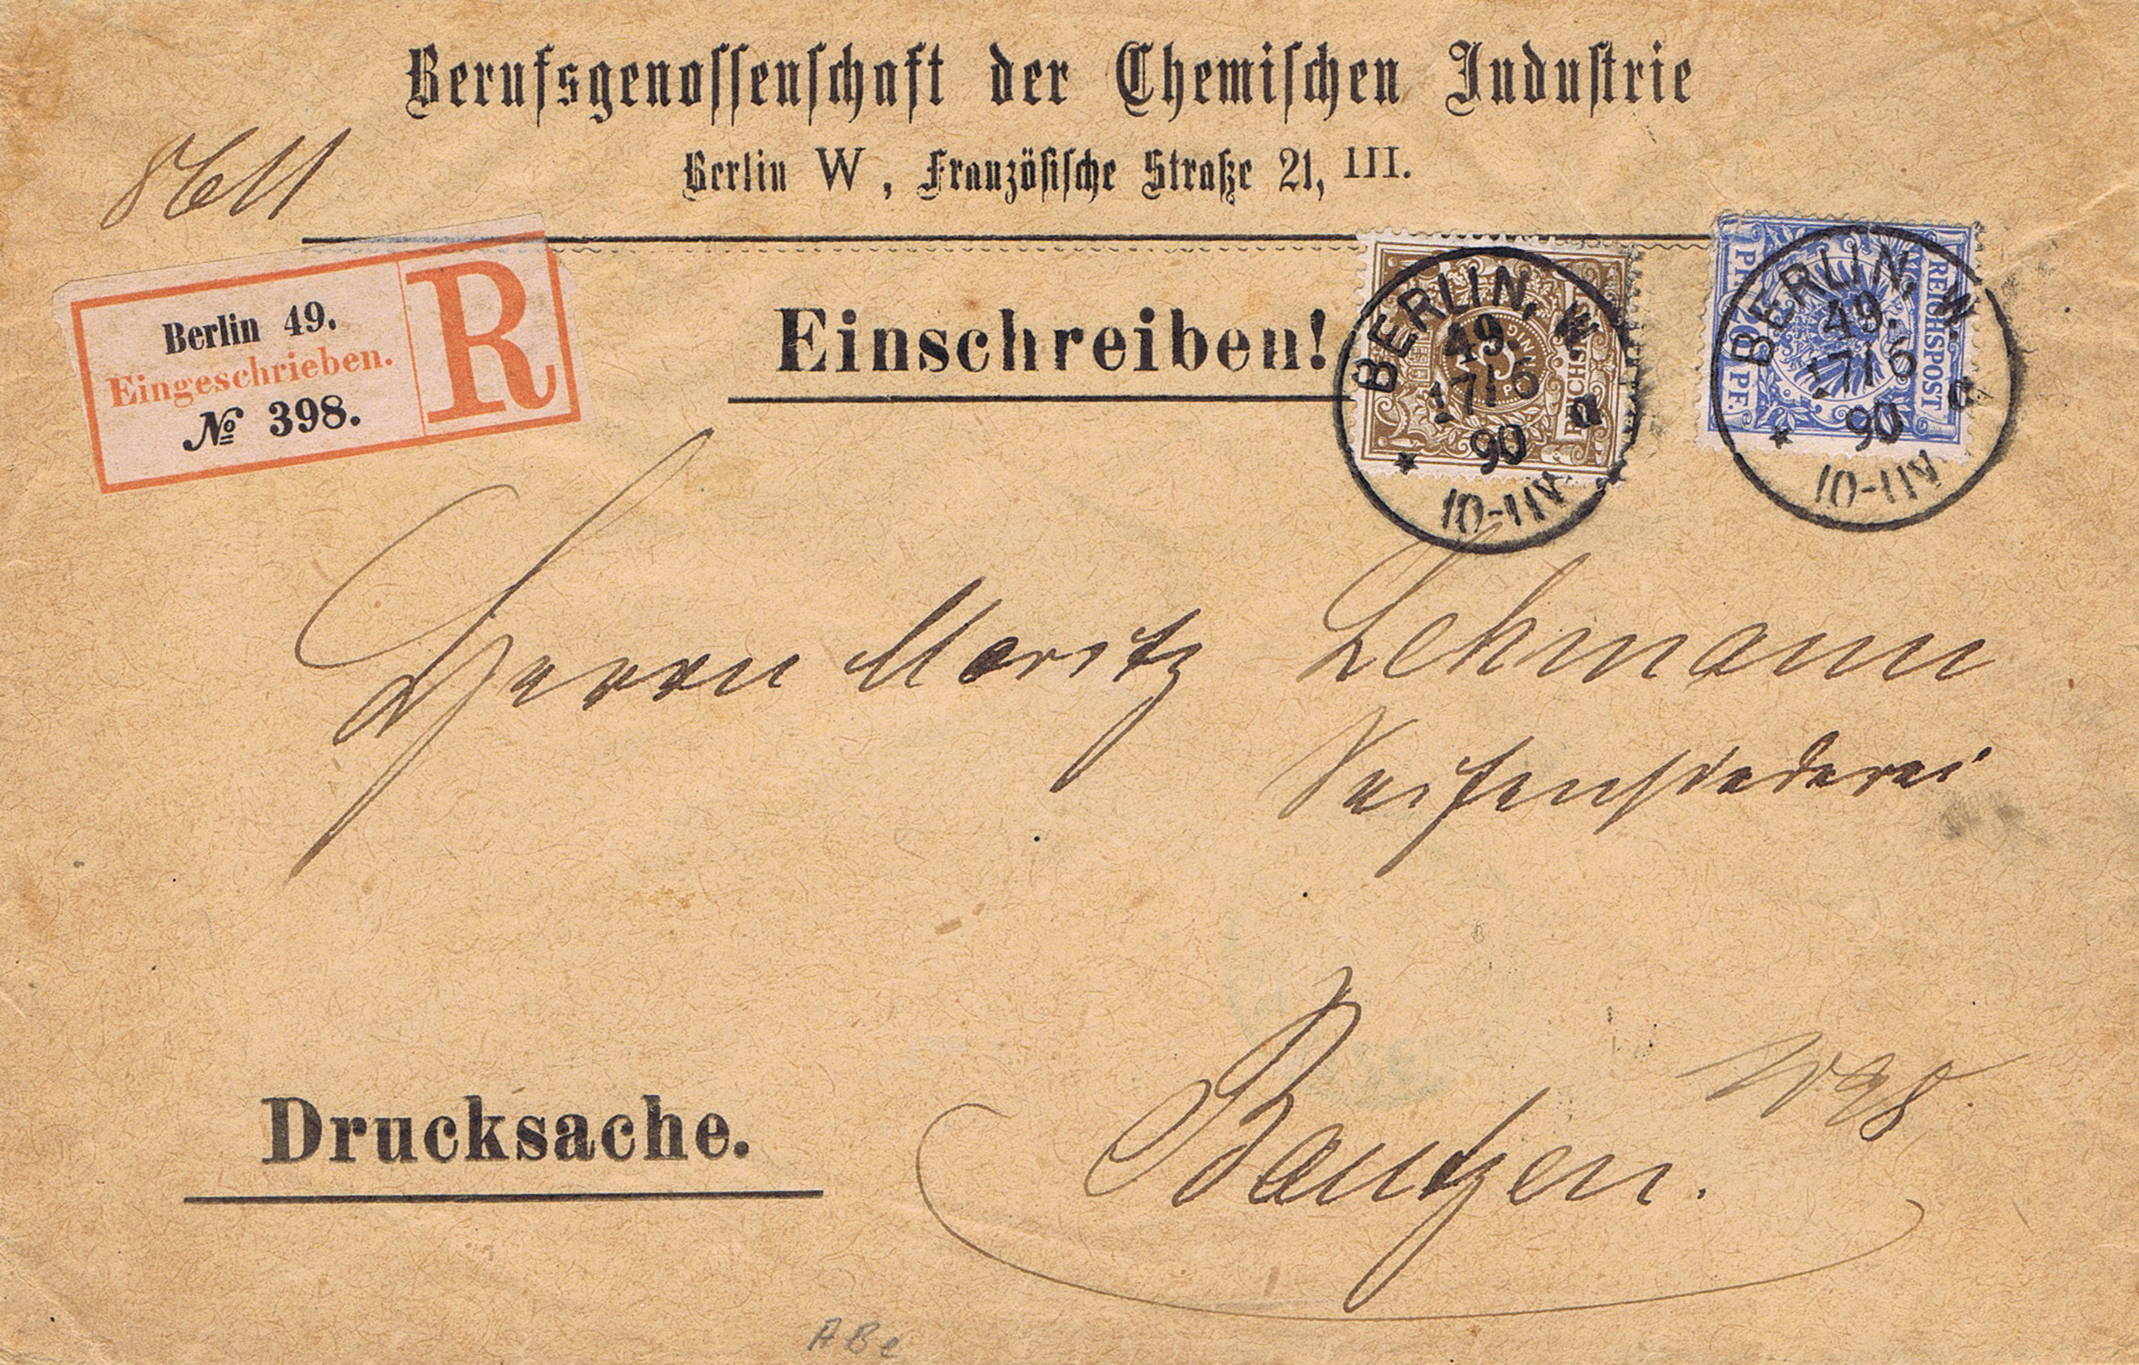 Berufsgenossenschaft der Chemischen Industrie
Berlin W, Französische Straße 21, III.
8611
Berlin 49.
Eingeschrieben.
№ 398.
R
Einschreiben!
BERLIN, W.
49.
17/6
90
a
10-11V
REICHSPOST
3
BERLIN, W.
49.
17/6
90
a
10-11V
REICHSPOST
20 PF.
Herrn Moritz Lehmann
Seifensiederei
Drucksache.
Bautzen.